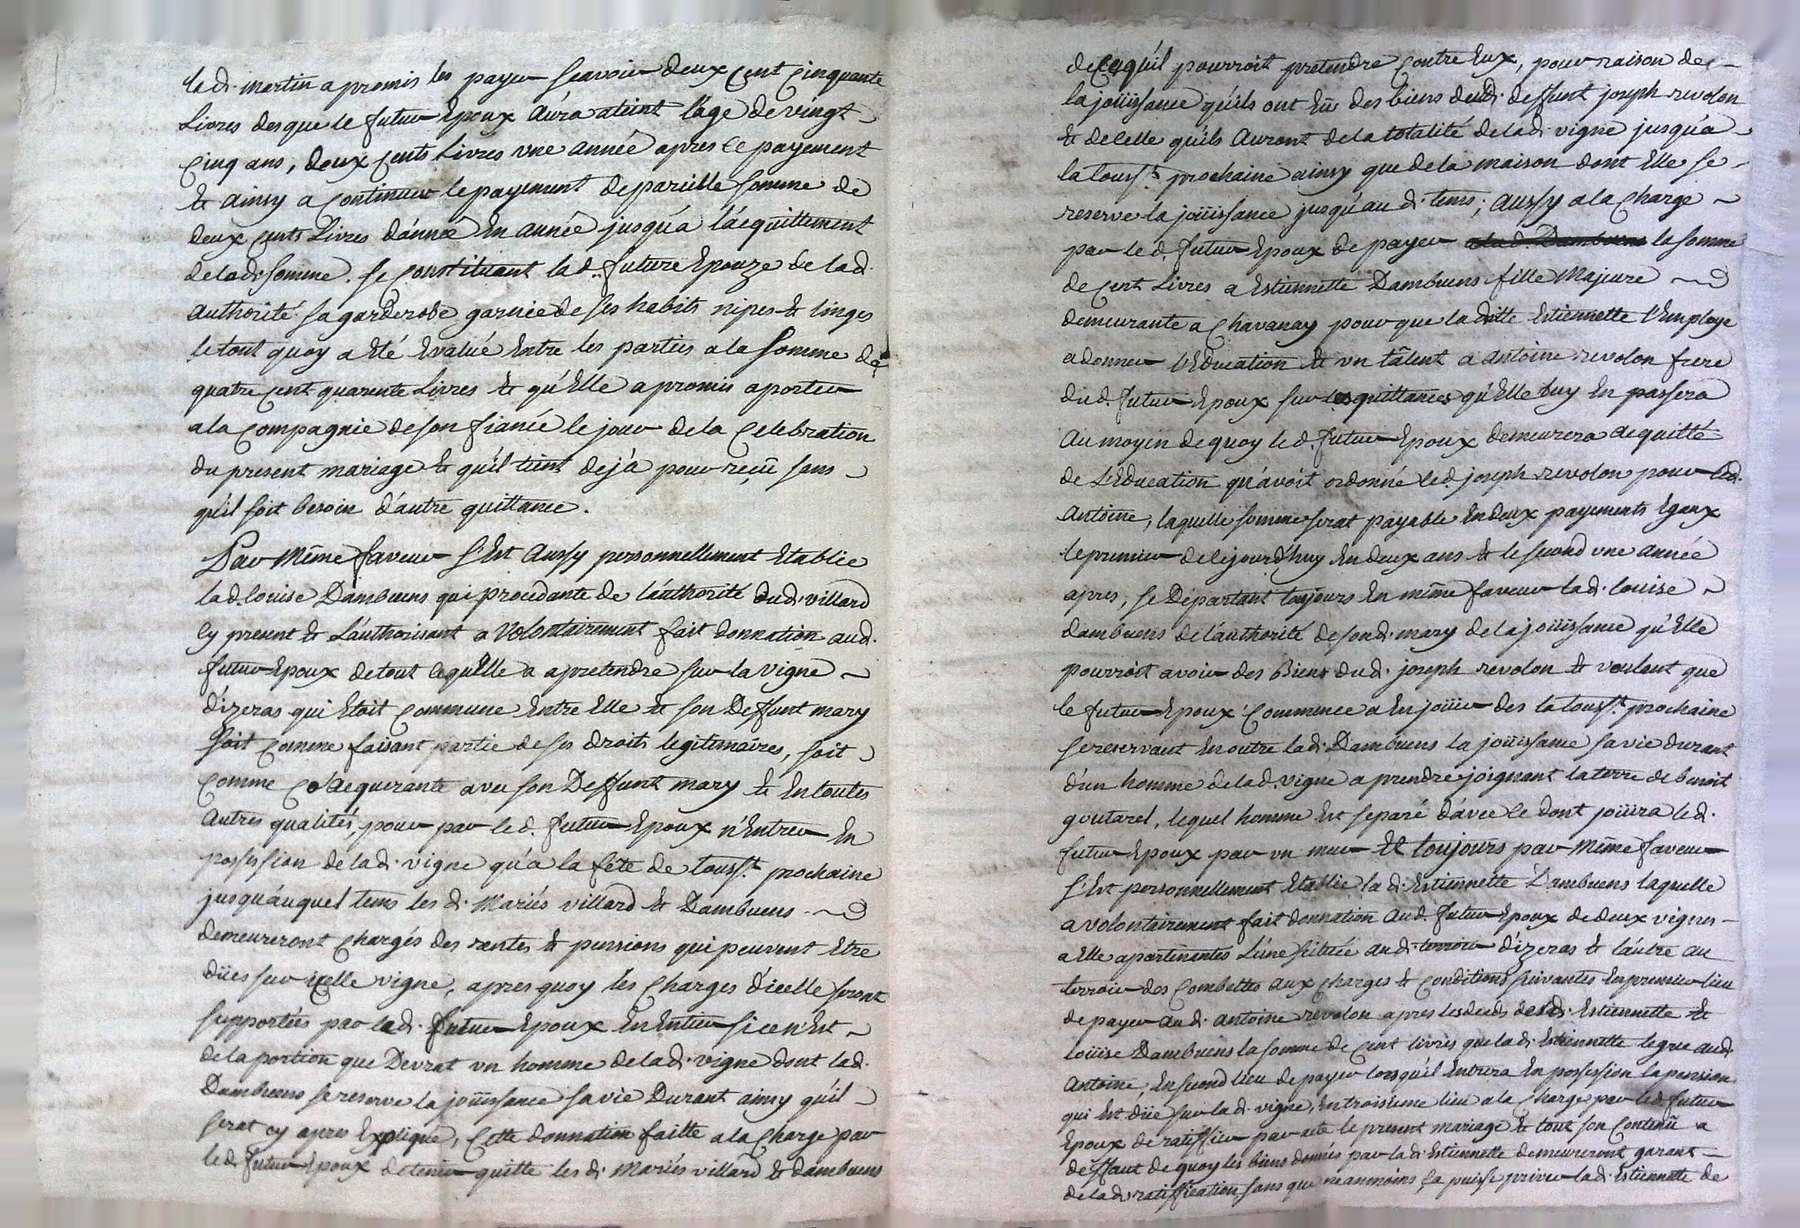 le d. martin a promis les payer scavoir deux cent cinquante
Livres desque le futur Epoux aura ateint l'age de vingt
cinq ans, deux cents Livres vne année apres ce payement
et ainsy a continuer le payement de pareille somme de
deux cents Livres d'année En année jusqu'a l'acquittement
de lad. somme. se constituant lad. future Epouze de lad.
authorité sa garderobe garnie de ses habits nipes et linges
le tout quoy a été Evalué Entre les parties a la somme de
quatre cent quarente Livres et qu'Elle a promis aporter
a la compagnie de son fiancé le jour de la Celebration
du present mariage et qu'il tient deja pour reçû sans
qu'il soit besoin d'autre quittance.
Par Même faveur s'Est Aussy personnellement Etablie
lad. Louise Dambuens qui procedante de l'authorité dud. villard
cy present et L'authorisant a volontairement fait donnation aud.
futur Epoux de tout ce qu'Elle a a pretendre sur la vigne
d'izeras qui Etoit Commune Entre Elle et son Deffunt mary
soit comme faisant partie de ses droits legitimaires, soit
comme coacquerante avec son Deffunt mary et En toutes
autres qualités, pour par le d. futur Epoux n'Entrer En
possession de lad. vigne qu'a la fête de touss.t prochaine
jusqu'auquel tems les d. Mariés villard et Dambuens
demeureront chargés des rentes et pensions qui peuvent Etre
düies sur icelle vigne, apres quoy les Charges d'icelle seront
supportées par led. futur Epoux En Entier si ce n'Est
de la portion que Devrat un homme de lad. vigne dont lad.
Dambuens se reserve la joüissance sa vie Durant ainsy qu'il
serat cy apres Expliqué, Cette donnation faitte a la Charge par
led. futur Epoux de tenir quitte les d. Mariés villard et dambuens
de ce qu'il pourroit pretendre contre Eux, pour raison de
la joüissance qu'ils ont Eüe des biens dud. deffunt joseph revolon
et de celle qu'ils Auront de la totalité de lad. vigne jusqu'a
la touss.t prochaine ainsy que de la maison dont Elle se
reserve la joüissance jusqu'au d. tems; Aussy a la Charge
par le d. futur Epoux de payer la somme
de cent Livres a Estiennette Dambuens fille Majeure
demeurante a Chavanay pour que la ditte Estiennette l'Employe
a donner l'Education et un tâlent a antoine revolon frere
dud. futur Epoux sur les quittances qu'Elle luy En passera
Au moyen de quoy le d. futur Epoux demeurera acquitté
de L'Education qu'avoit ordonné led. joseph revolon pour led.
Antoine, laquelle somme serat payable En deux payements Egaux
le premier de cejourdhuy En deux ans et le second vne année
apres, se Départant toujours En même faveur lad. Louise
dambuens de l'authorité de son d. mary de la joüissance qu'Elle
pourroit avoir des Biens dud. joseph revolon et voulent que
le futur Epoux Commence a En joüir des la touss.t prochaine
se reservant En outre lad. Dambuens la joüissance sa vie durant
d'un homme de lad. vigne a prendre joignant la terre de benoit
goutarel, lequel homme Est separé d'avec ce dont joüira le d.
futur Epoux par un mur Et toujours par Même faveur
s'Est personnellement Etablie lad. Estiennette Dambuens laquelle
a volontairement fait donnation Aud. futur Epoux de deux vignes
a Elle apartenantes L'une scituée au d. terroir d'izeras et l'autre au
terroir des Combettes aux charges et conditions suivantes En premier lieu
de payer au d. antoine revolon apres les deceds desd. Estiennette et
Loüise Dambuens la somme de cent livres que lad. Estiennette legue aud.
Antoine, En second lieu de payer lorsqu'il Entrera En possession la pension
qui Est düe sur la d. vigne, En troisieme lieu a la Charge par led. futur
Epoux de ratiffier par acte le present mariage et tout son Contenû a
deffaut de quoy les biens donnés par lad. Estiennette demeureront garant
de lad. ratiffication sans que neanmoins ça puisse priver lad. Estiennette de